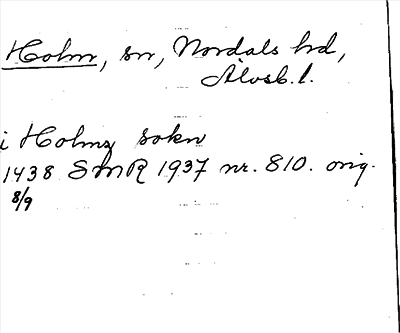 Holm, sn, Nordals hd,
Älvsb. l.
i Holmz sokn
1438 SMR 1937 nr. 810. orig.
8/9